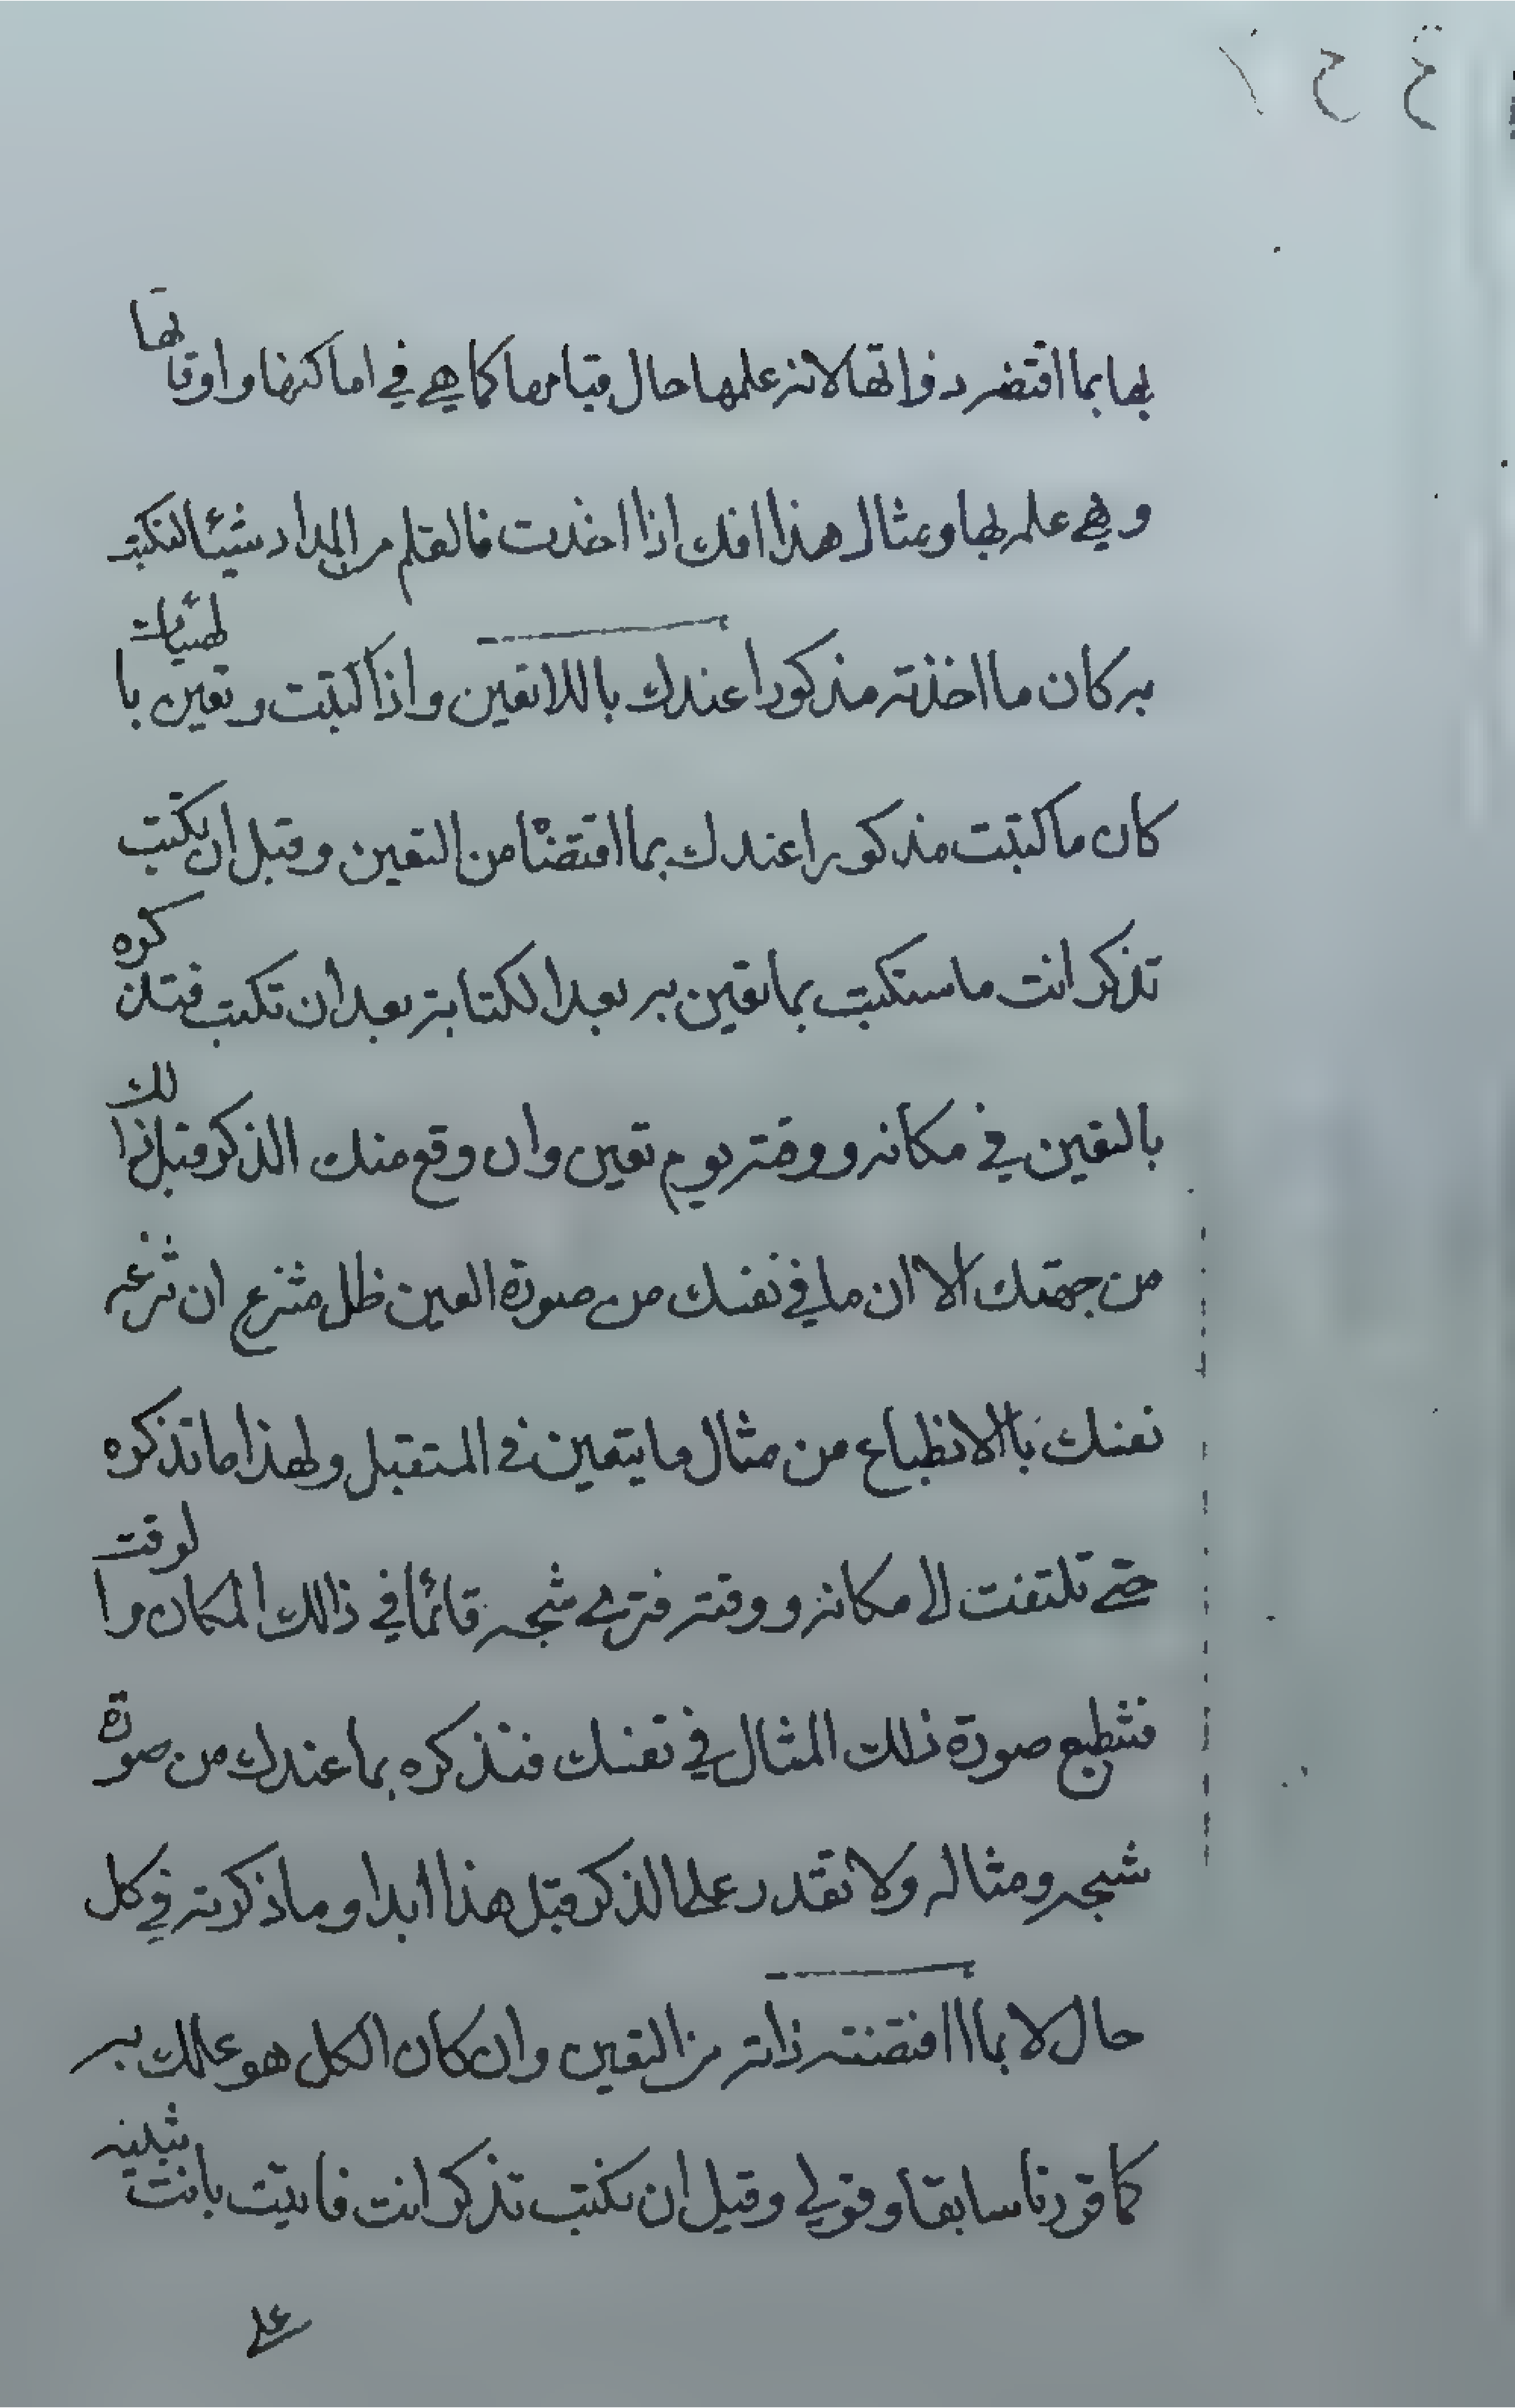 بها بما اقتضر ذواتها لانه علمها حال قيامها كما هي في اماكنها واوقاتها
وهي علمه بها ومثال هذا انك اذا اخذت فالقلم من المداد شيئا لتكتب
به كان ما اخذته مذكورا عندك باللاتعين واذا كتبت وتعين بالهيئات
كان ما كتبت مذكورا عندك بما اقتضا من التعين وقبل ان تكتب
تذكر انت ما ستكتب بما تعين به بعد الكتابة بعد ان تكتب فتذكره
بالتعين في مكانه ووقته يوم تعين وان وقع منك الذكر قبل ذالك
من جهتك الا ان ما في نفسك من صورة العين ظل منتزع انتزعته
نفسك باالانطباع من مثال ما يتعين في المتقبل ولهذا ما تذكره
حتى تلتفت الى مكانه ووقته فترى شبحه قائما في ذالك المكان والوقت
فتنطبع صورة ذلك المثال في نفسك فتذكره بما عندك من صورة
شبحه ومثاله ولا تقدر على الذكر قبل هذا ابدا وما ذكرته في كل
حال لا بما اقتضته ذاته من التعين وان كان الكل هو علمك به
كما قررنا سابقا وقولي وقبل ان تكتب تذكر انت فاتيت بانت
على